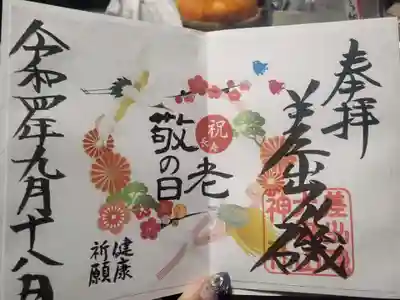 奉拝
差出磯
祝
長寿
敬老の日
健康
祈願
令和四年九月十八日